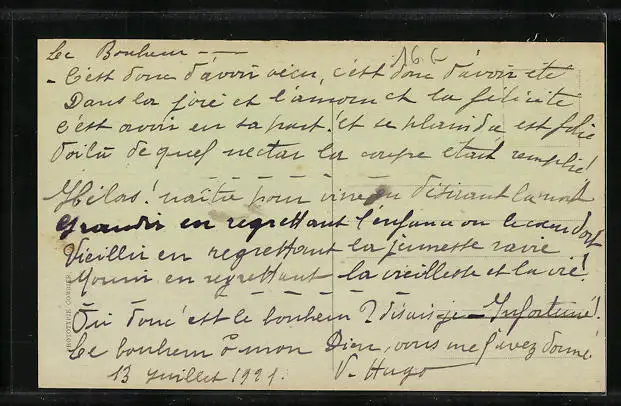 Le Bonheur —
166
- C'est donc d'avoir vécu, c'est donc d'avoir été
Dans la joie et l'amour et la félicité
C'est avoir eu sa part! et se plaindre est folie
Voilà de quel nectar la coupe était remplie!
Hélas! naître pour vivre en désirant la mort
Grandir en regrettant l'enfance où le cœur dort
Vieillir en regrettant la jeunesse ravie
Mourir en regrettant la vieillesse et la vie!
Où donc est le bonheur? disais-je - Infortuné!
Le bonheur ô mon Dieu, vous me l'avez donné
13 Juillet 1921.
V. Hugo
PHOTOTYPIE COMBIER